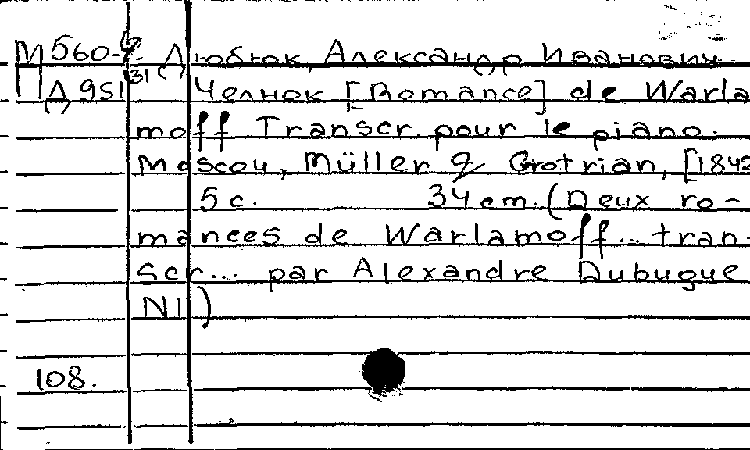 М 560-2 Дюбюк, Александр Иванович.
31
Д 951 Челнок [Romance] de Warla
moff Transcr. pour le piano.
Moscou, Müller & Grotrian, [1842
5 с. 34 cm. (Deux ro-
mances de Warlamoff... tran-
scr... par Alexandre Dubuque
N1)
108.